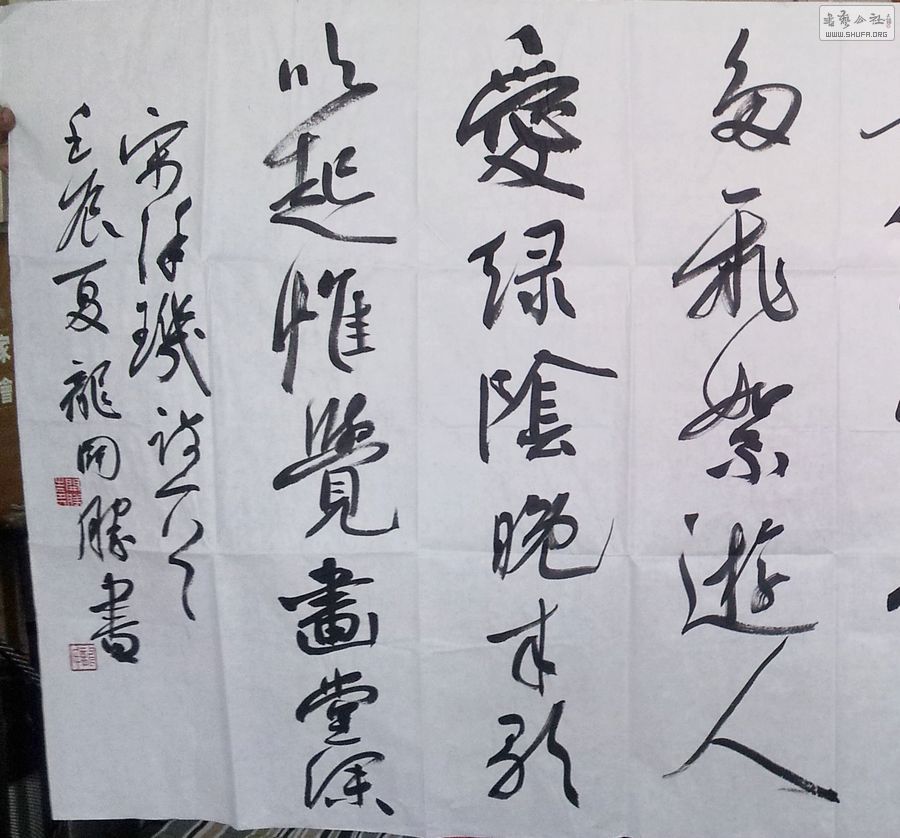 書藝公社
WWW.SHUFA.ORG
多飛絮遊人
愛绿陰晚来歌
吹起惟覺畫堂深
宋徐璣诗一首
壬辰夏龍開勝書